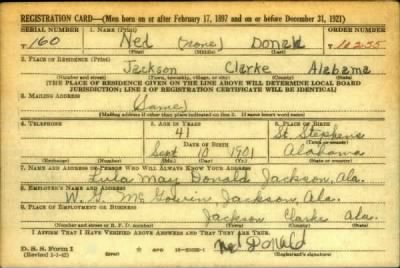 REGISTRATION CARD—(Men born on or after February 17, 1897 and on or before December 31, 1921)
SERIAL NUMBER 1. NAME (Print) ORDER NUMBER
T 160 Ned (none) Donald T 10255
(First) (Middle) (Last)
2. PLACE OF RESIDENCE (Print)
Jackson Clarke Alabama
(Number and street) (Town, township, village, or city) (County) (State)
[THE PLACE OF RESIDENCE GIVEN ON THE LINE ABOVE WILL DETERMINE LOCAL BOARD
JURISDICTION; LINE 2 OF REGISTRATION CERTIFICATE WILL BE IDENTICAL]
3. MAILING ADDRESS
(Same)
[Mailing address if other than place indicated on line 2. If same insert word same]
4. TELEPHONE 5. AGE IN YEARS 6. PLACE OF BIRTH
41 St. Stephens
DATE OF BIRTH (Town or county)
Sept 10 1901 Alabama
(Exchange) (Number) (Mo.) (Day) (Yr.) (State or country)
7. NAME AND ADDRESS OF PERSON WHO WILL ALWAYS KNOW YOUR ADDRESS
Lula May Donald Jackson, Ala.
8. EMPLOYER'S NAME AND ADDRESS
Mc Gowin, Jackson, Ala.
9. PLACE OF EMPLOYMENT OR BUSINESS
Jackson Clarke Ala.
(Number and street or R. F. D. number) (Town) (County) (State)
I AFFIRM THAT I HAVE VERIFIED ABOVE ANSWERS AND THAT THEY ARE TRUE.
D. S. S. Form 1
(Revised 1-1-42) (over) Ned Donald
(Registrant's signature)